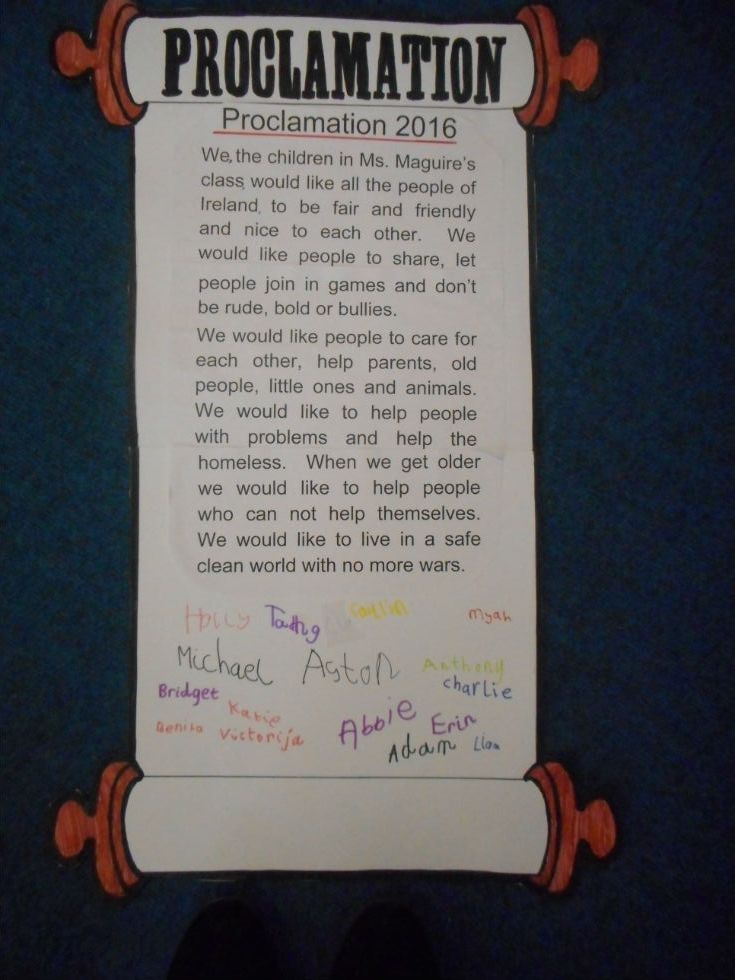 PROCLAMATION
Proclamation 2016
We, the children in Ms. Maguire's
class, would like all the people of
Ireland, to be fair and friendly
and nice to each other. We
would like people to share, let
people join in games and don't
be rude, bold or bullies.
We would like people to care for
each other, help parents, old
people, little ones and animals.
We would like to help people
with problems and help the
homeless. When we get older
we would like to help people
who can not help themselves.
We would like to live in a safe
clean world with no more wars.
Holly Tadhg Caitlin Myah
Michael Aston Anthony
charlie
Bridget Katie Abbie Erin
Benita Victorija Adam